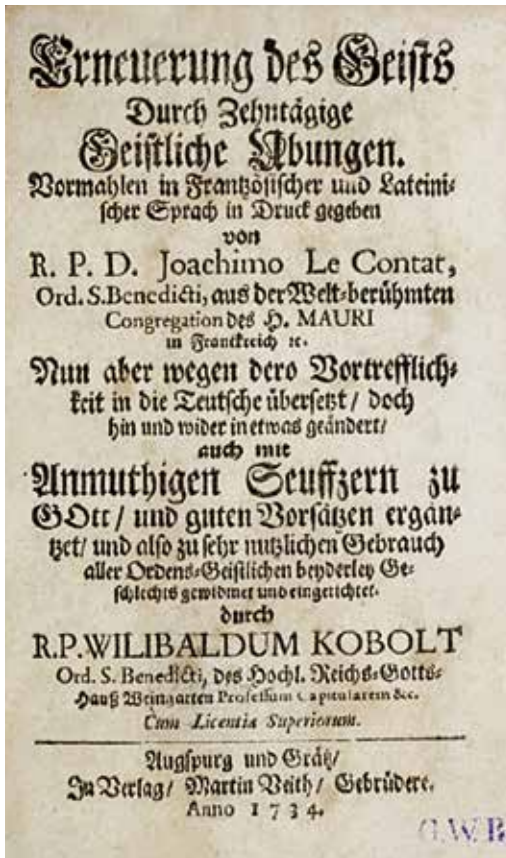 Erneuerung des Geists
Durch Zehntägige
Geistliche Ubungen.
Vormahlen in Frantzösischer und Lateini-
scher Sprach in Druck gegeben
von
R. P. D. Joachimo Le Contat,
Ord. S. Benedicti, aus der Welt-berühmten
Congregation des H. MAURI
in Franckreich ꝛc.
Nun aber wegen dero Vortrefflich-
keit in die Teutsche übersetzt / doch
hin und wider in etwas geändert /
auch mit
Anmuthigen Seuffzern zu
GOtt / und guten Vorsätzen ergän-
tzet / und also zu sehr nutzlichen Gebrauch
aller Ordens-Geistlichen beyderley Ge-
schlechts gewidmet und eingerichtet.
durch
R.P. WILIBALDUM KOBOLT
Ord. S. Benedicti, des Hochl. Reichs-Gotts-
Hauß Weingarten Professum Capitularem &c.
Cum Licentia Superiorum.
Augspurg und Grätz /
In Verlag / Martin Veith / Gebrüdere.
Anno 1734.
G.W.B